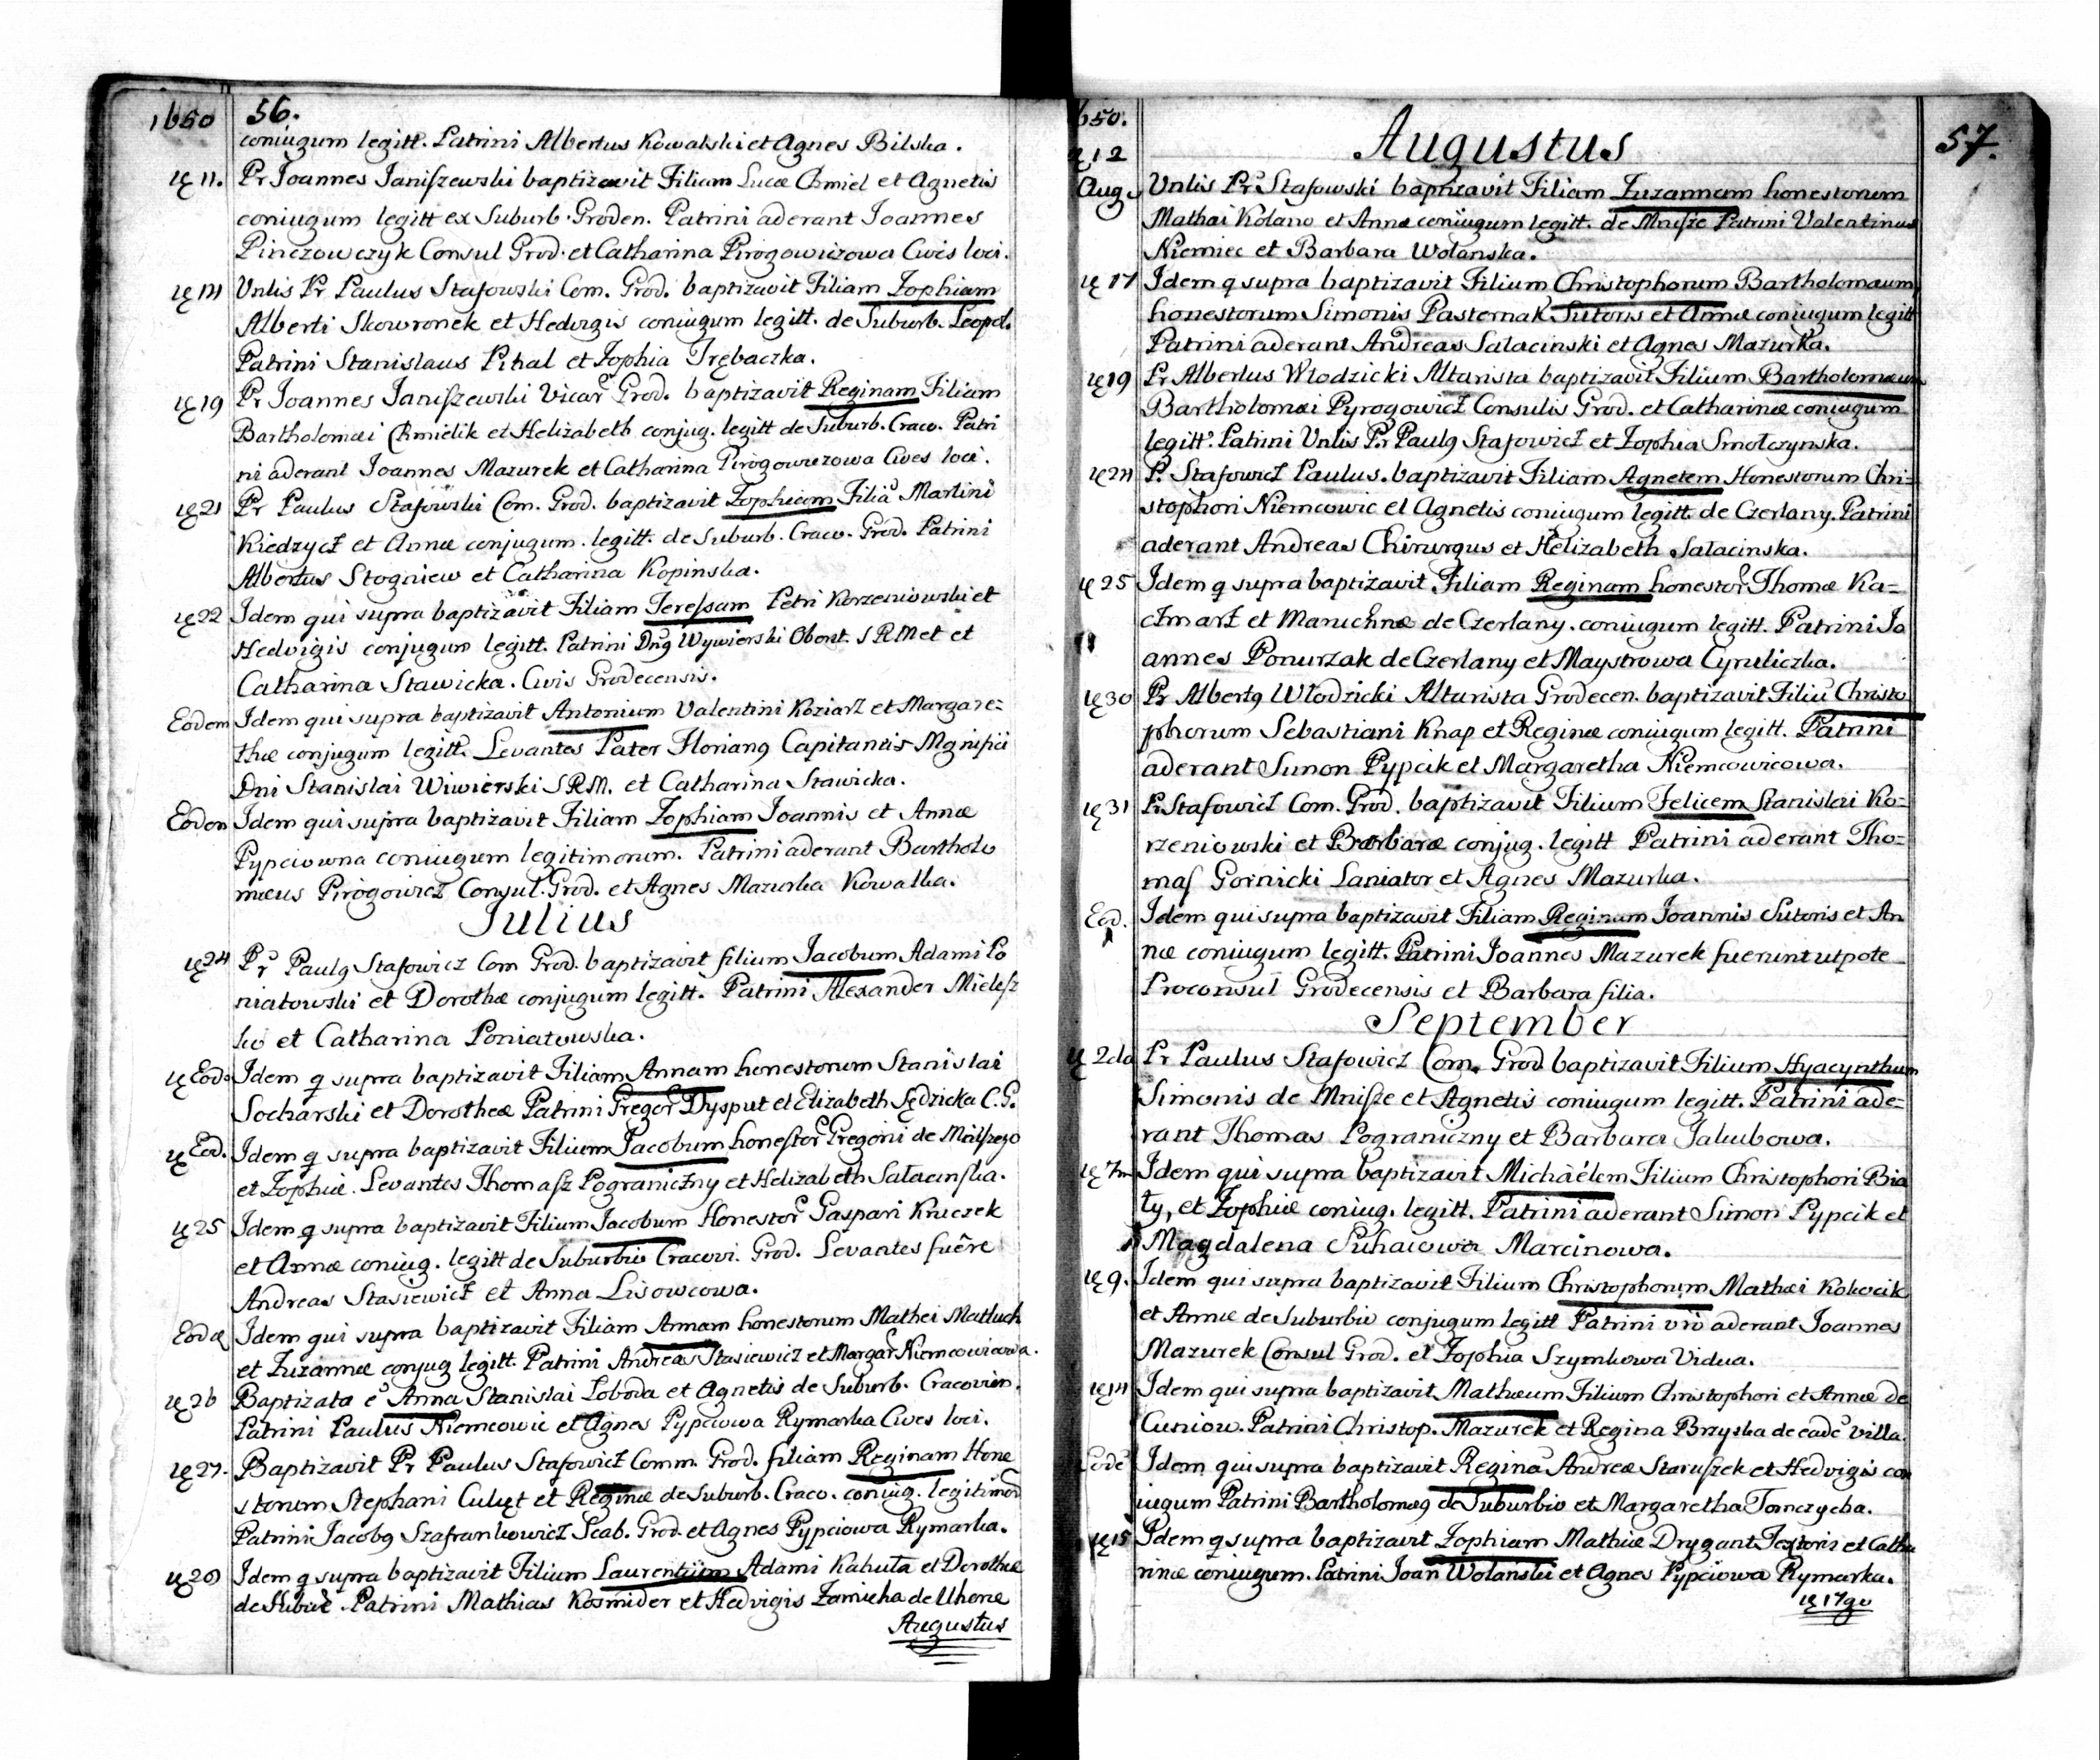 1650 56.
coniugum legitt. Patrini Albertus Kowalski et Agnes Bilska.
11. Pr Joannes Janiszewski baptizavit Filium Lucæ Chmiel et Agnetis
coniugum legitt ex Suburb. Groden. Patrini aderant Joannes
Pinczowczyk Consul Grod. et Catharina Pirogowiczowa Civis loci.
Vnlis Pr Paulus Stafowski Com. Grod. baptizavit Filiam Zophiam
Alberti Skowronek et Hedvigis coniugum legitt. de Suburb. Leopol.
Patrini Stanislaus Pihal et Zophia Trębaczka.
19 Pr Joannes Janiszewski Vicar Grod. baptizavit Reginam Filiam
Bartholomæi Chmielik et Helizabeth conjug. legitt de Suburb. Craco. Patri
ni aderant Joannes Mazurek et Catharina Pirogowiczowa Cives loci.
21 Pr Paulus Stafowski Com. Grod. baptizavit Zophiam Filiã Martini
Kiedzycz et Annæ conjugum. legitt. de Suburb. Craco. Grod. Patrini
Albertus Stogniew et Catharina Kopinska.
22 Idem qui supra baptizavit Filiam Teressam Petri Korzeniowski et
Hedvigis conjugum legitt. Patrini Dng Wywierski Obont. SRM et et
Catharina Stawicka. Civis Grodecensis.
Eodem Idem qui supra baptizavit Antonium Valentini Koziarz et Margare=
thæ conjugum legitt. Levantes Pater Florianq Capitaneis Mgnifici
Dni Stanislai Wiwierski SRM. et Catharina Stawicka.
Eodem Idem qui supra baptizavit Filiam Zophiam Joannis et Annæ
Pypciowna coniugum legitimorum. Patrini aderant Bartholo
mæus Pirogowicz Consul. Grod. et Agnes Mazurka Kowalka.
Julius
24 Pr Paulq Stafowicz Com Grod. baptizavit filium Jacobum Adami Po
niatowski et Dorothæ conjugum legitt. Patrini Alexander Mielesz
ko et Catharina Poniatowska.
Eod. Idem q supra baptizavit Filiam Annam honestorum Stanislai
Socharski et Dorotheæ Patrini Gregor Dysput et Elizabeth Sędzicka C. G.
Eod. Idem q supra baptizavit Filium Jacobum honestor Gregorii de Malszego
et Zophiæ. Levantes Thomasz Pograniczny et Helizabeth Salacinska.
25 Idem q supra baptizavit Filium Jacobum Honestor Gaspari Kruczek
et Annæ coniug. legitt de Suburbio Cracovi. Grod. Levantes fuêre
Andreas Stasiewicz et Anna Lisowcowa.
Idem qui supra baptizavit Filiam Annam honestorum Mathei Matluch
et Zuzannæ conjug legitt. Patrini Andreas Stasiewicz et Margar Niemcowicowa.
26 Baptizata ẽ Anna Stanislai Loboda et Agnetis de Suburb. Cracovien.
Patrini Paulus Niemcowic et Agnes Pypciowa Rymarka Cives loci.
27. Baptizavit Pr Paulus Stafowicz Comm. Grod. filiam Reginam Hone
storum Stephani Culyt et Reginæ de Suburb. Craco. coniug. legitimor
Patrini Jacobq Szafrankowicz Scab. Grod. et Agnes Pypciowa Rymarka.
Idem q supra baptizavit Filium Laurentium Adami Kahuta et Dorotheæ
de Patrini Mathias Kosmider et Hedvigis Zamicha de Uhone
Augustus
650. Augustus 57.
12
Aug. Vnlis Pr Stafowski baptizavit Filiam Zuzannam honestorum
Mathæi Kolano et Annæ coniugum legitt. de Mnisze Patrini Valentinus
Niemiec et Barbara Wolanska.
17 Idem q supra baptizavit Filium Christophorum Bartholomæum
honestorum Simonis Pasternak Sutoris et Annæ coniugum legitt
Patrini aderant Andreas Salacinski et Agnes Mazurka.
19 Pr Albertus Wlodzicki Altarista baptizavit Filium Bartholomæum
Bartholomæi Pyrogowicz Consulis Grod. et Catharinæ coniugum
legitt. Patrini Vnlis Pr Paulq Stafowicz et Zophia Smolczynska.
P. Stafowicz Paulus. baptizavit Filiam Agnetem Honestorum Chri=
stophori Niemcowic et Agnetis coniugum legitt. de Czerlany. Patrini
aderant Andreas Chirurgus et Helizabeth Salacinska.
25 Idem q supra baptizavit Filiam Reginam honestor Thomæ Ka=
czmarz et Maruchnæ de Czerlany. coniugum legitt. Patrini Jo
annes Ponurzak de Czerlany et Maystrowa Cyruliczka.
30 Pr Albertq Wlodzicki Altarista Grodecen. baptizavit Filiũ Christo
phorum Sebastiani Knap et Reginæ coniugum legitt. Patrini
aderant Simon Pypcik et Margaretha Niemcowicowa.
31 Pr. Stafowicz Com. Grod. baptizavit Filium Felicem Stanislai Ko=
rzeniowski et Barbaræ conjug. legitt Patrini aderant Tho=
mas Gornicki Laniator et Agnes Mazurka.
Eod. Idem qui supra baptizavit Filiam Reginam Joannis Sutoris et An
næ coniugum legitt. Patrini Joannes Mazurek fuerunt utpote
Proconsul Grodecensis et Barbara filia.
September
2da Pr Paulus Stafowicz Com. Grod baptizavit Filium Hyacynthum
Simonis de Mnisze et Agnetis coniugum legitt. Patrini ade=
rant Thomas Pograniczny et Barbara Jakubowa.
7m Idem qui supra baptizavit Michaëlem Filium Christophori Bia
ty, et Zophiæ coniug. legitt. Patrini aderant Simon Pypcik et
Magdalena Suhaiowa Marcinowa.
9. Idem qui supra baptizavit Filium Christophorum Mathæi Kokocik
et Annæ de Suburbio conjugum legitt Patrini vrò aderant Joannes
Mazurek Consul Grod. et Zophia Szymkowa Vidua.
14 Idem qui supra baptizavit Mathæum Filium Christophori et Annæ de
Cuniow. Patrini Christop. Mazurek et Regina Brzyska de eadẽ villa.
Eodẽ Idem qui supra baptizavit Reginã Andreæ Staruszek et Hedvigis con
iugum Patrini Bartholomeq de Suburbio et Margaretha Tomczycha.
15 Idem q supra baptizavit Zophiam Mathiæ Drygant Textoris et Catha
rinæ coniugum. Patrini Joan Wolanski et Agnes Pypciowa Rymarka.
17go